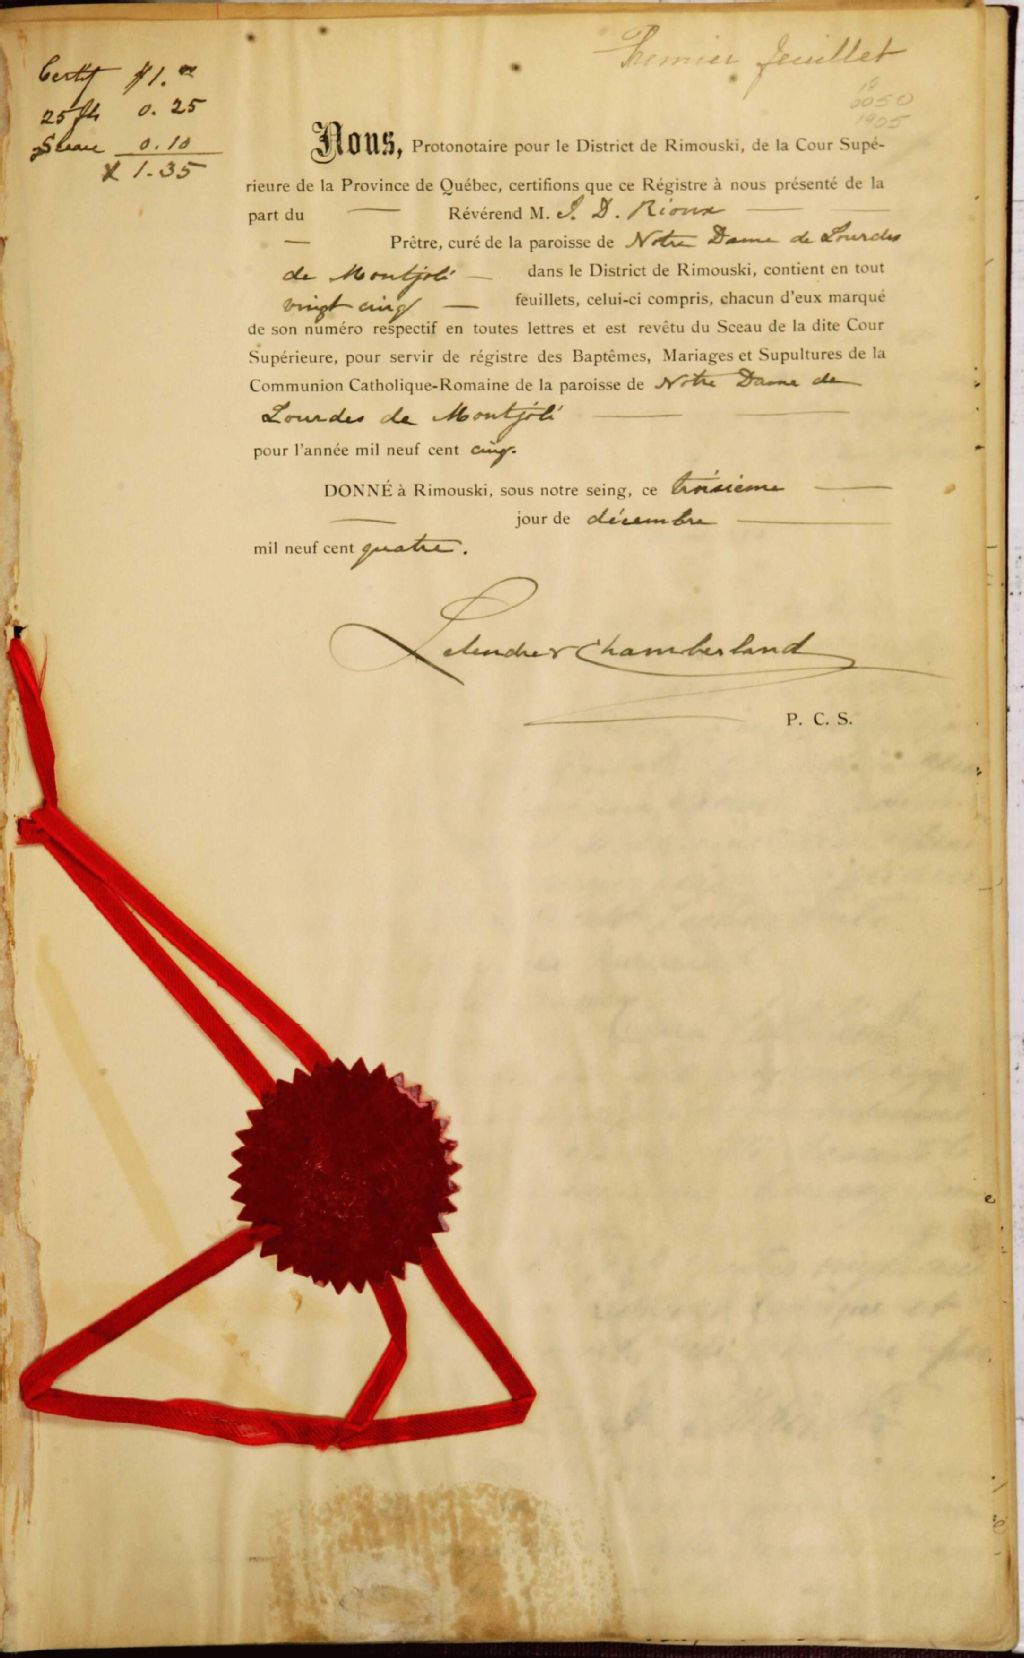 Premier feuillet
Certif $1.00
25 fts 0.25
Sceau 0.10
$ 1.35
5050
1905
Nous, Protonotaire pour le District de Rimouski, de la Cour Supé-
rieure de la Province de Québec, certifions que ce Régistre à nous présenté de la
part du — Révérend M. J. D. Rioux —
— Prêtre, curé de la paroisse de Notre Dame de Lourdes
de Montjoli — dans le District de Rimouski, contient en tout
vingt cinq — feuillets, celui-ci compris, chacun d'eux marqué
de son numéro respectif en toutes lettres et est revêtu du Sceau de la dite Cour
Supérieure, pour servir de régistre des Baptêmes, Mariages et Supultures de la
Communion Catholique-Romaine de la paroisse de Notre Dame de
Lourdes de Montjoli —
pour l'année mil neuf cent cinq.
DONNÉ à Rimouski, sous notre seing, ce troisième —
— jour de décembre —
mil neuf cent quatre.
Chamberland
P. C. S.